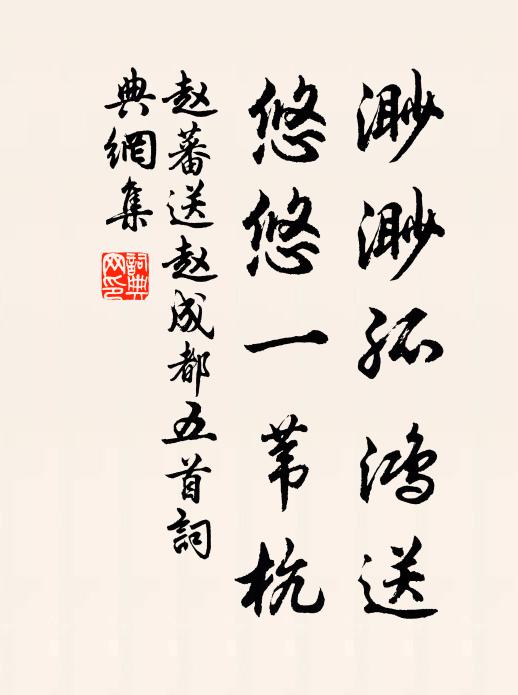 渺渺孤鸿送
悠悠一苇杭
赵蕃送赵成都五首詞
典網集
詞典
网印